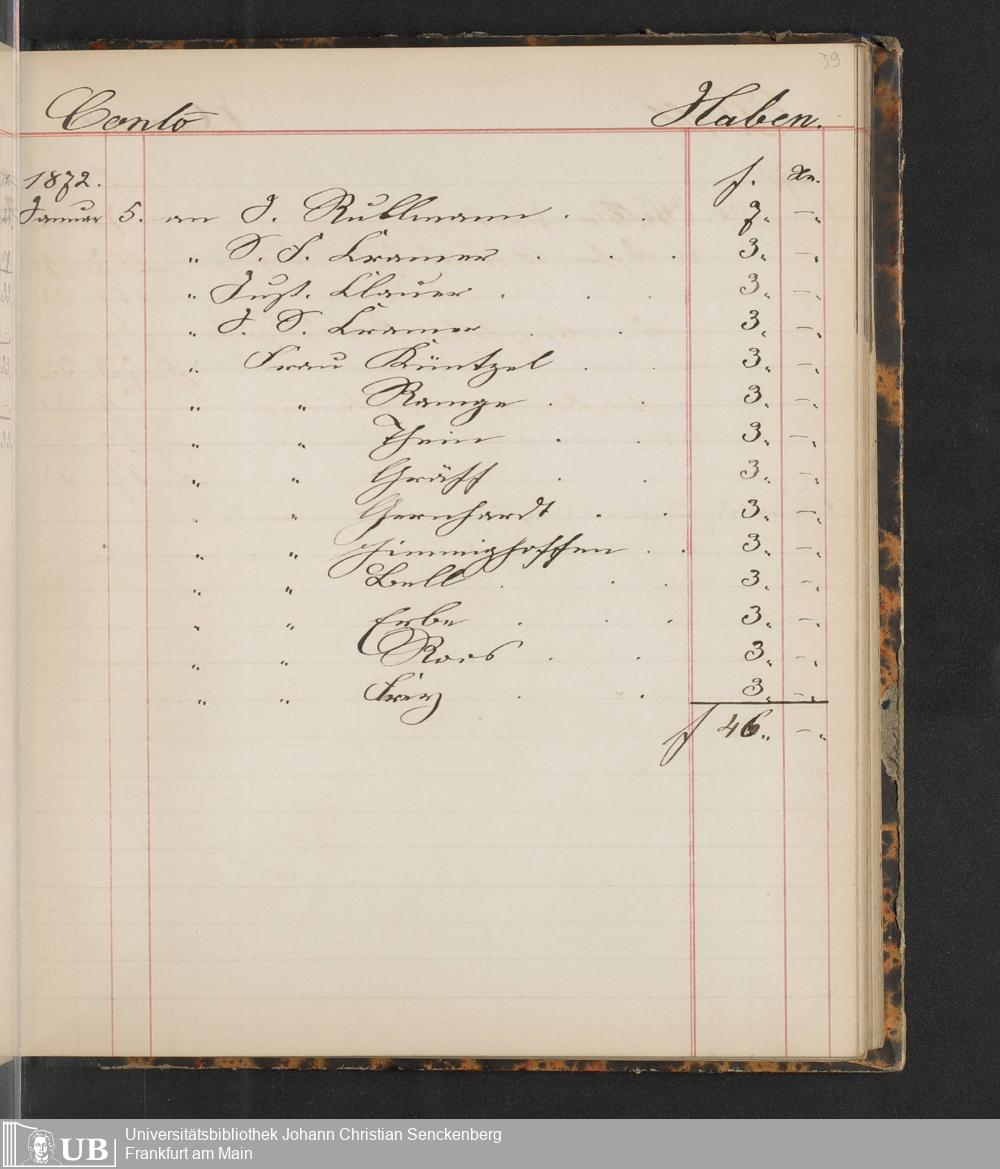 39
Conto Haben.
1872. f. Xr.
Januar 5. an J. Rullmann . . 7. —.
" S. F. Kramer . . . 3. —.
" Just. Clauer . . . 3. —.
" J. S. Kramer . . 3. —.
" Frau Küntzel . . 3. —.
" " Ramge . . 3. —.
" " Thein . . 3. —.
" " Gräff . . 3. —.
" " Gernhardt . . 3. —.
" " Himmighoffen . . 3. —.
" " Bell . . . 3. —.
" " Erbe . . . 3. —.
" " Roos . . 3. —.
" " . . 3. —.
f 46. —.
UB
Universitätsbibliothek Johann Christian Senckenberg
Frankfurt am Main